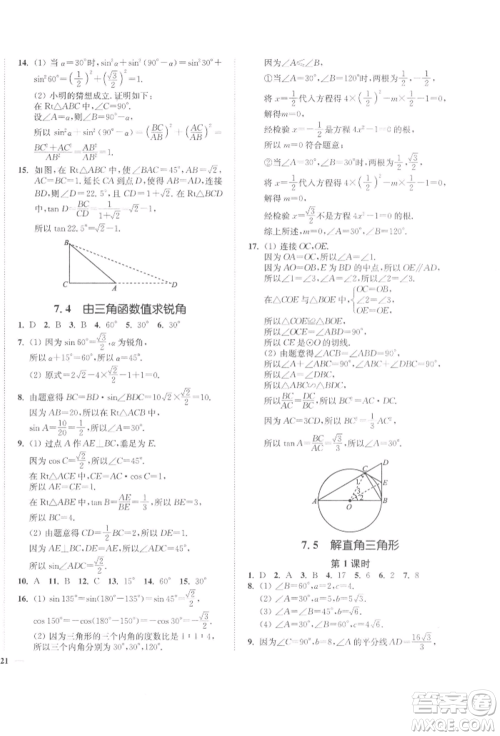 14. (1) 当 α=30°时,sin²α+sin²(90°-α)=sin²30°+
sin²60°=(1/2)²+(√3/2)²=1.
(2) 小明的猜想成立. 证明如下:
在 Rt△ABC 中,∠C=90°.
设∠A=α,则∠B=90°-α.
所以 sin²α+sin²(90°-α)=(BC/AB)²+(AC/AB)²=
(BC²+AC²)/AB²=AB²/AB²=1.
15. 如图,在 Rt△ABC 中,∠ABC=45°,∠BAC=45°,
AC=BC=1. 延长 CA到点 D,使 AD=AB,连接
BD,则∠D=22.5°,tan D=BC/CD=1/(1+√2)=√2-1.
所以 tan 22.5°=√2-1.
B
C
A
D
7.4 由三角函数值求锐角
1. D 2. B 3. B 4. 60° 5. 30° 6. 15°
7. (1) 因为 sin 60°=√3/2,α为锐角,
所以 α+15°=60°.所以 α=45°.
(2) 原式=2√2-4×√2/2-1+1=0.
8. 由题意得 BC=BD·sin∠BDC=10√2×√2/2=10.
因为 AB=20,
所以 sin A=10/20=1/2.所以∠A=30°.
9. (1) 过点 A 作 AE⊥BC,垂足为 E.
因为 cos C=√2/2,所以∠C=45°.
在 Rt△ACE 中,CE=AC·cos C=1,
所以 AE=CE=1.
在 Rt△ABE 中,tan B=AE/BE=1/3,所以 BE=3,
所以 BC=BE+CE=4.
(2) 由题意得 CD=1/2 BC=2,所以 DE=CD-CE=1.
因为 AE⊥BC,DE=AE,
所以∠ADC=45°.
10. A 11. B 12. C 13. 75° 14. 30° 15. 60°
16. (1) sin 135°=sin(180°-135°)=sin 45°=√2/2,
sin 150°=sin(180°-150°)=sin 30°=1/2.
(2) 因为三角形的三个内角的度数比是 1:1:4,
所以三角形的三个内角的度数分别为 30°,
30°,120°.
①当∠A=30°,∠B=120°时,方程的两根为1/2,1/2.
将 x=1/2代入方程得 4×(1/2)²-m×1/2-1=0.
解得m=0.
经检验 x=-1/2是方程 4x²-1=0 的根.
所以 m=0 符合题意;
③当∠A=30°,∠B=30°时,方程的两根为1/2,√3/2.
将 x=1/2代入方程得 4×(1/2)²-m×1/2-1=0.
解得 m=0.
经检验 x=√3/2不是方程 4x²-1=0 的根.
综上所述,m=0,∠A=30°,∠B=120°.
17. (1) 连接 OC,OE.
因为 OA=OC,所以∠A=∠1.
因为 AO=OB,E 为 BD 的中点,
所以 OE∥AD.所以∠1=∠3,∠A=∠2.
所以∠2=∠3.
在△COE 和△BOE 中,
所以△COE≌△BOE.
所以∠OCE=∠ABD=90°.
所以 CE 是⊙O 的切线.
(2) 由题意得∠A+∠ABC=90°,
∠CBD+∠ABC=90°,所以∠A=∠CBD.
所以 Rt△ABC∽Rt△BDC.
所以 BC/DC=AC/BC.所以 BC²=AC·DC.
因为 AC=3CD,所以 BC²=1/3 AC².
所以 tan A=BC/AC=√3/3.所以∠A=30°.
D
C
E
1
3
2
A
O
B
7.5 解直角三角形
第 1 课时
1. D 2. A 3. B 4. 17 5. 6 6. 2 7. 8
8. (1) ∠B=60°,a=5,b=5√3.
(2) ∠A=30°,∠B=60°,b=9√3.
(3) ∠A=60°,∠B=30°,c=6√2.
(4) ∠A=30°,∠B=60°,c=2.
9. 因为∠C=90°,∠A 的平分线 AD=16√3/3,
21